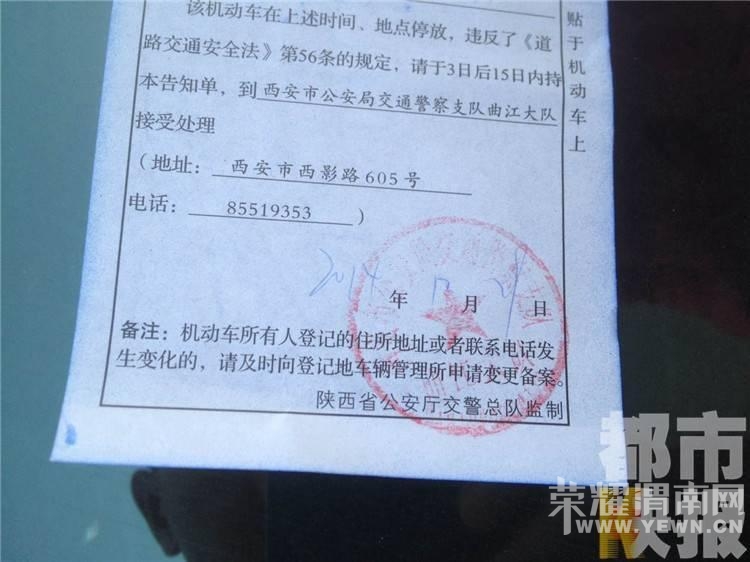 该机动车在上述时间、地点停放，违反了《道
路交通安全法》第56条的规定，请于3日后15日内持
本告知单，到西安市公安局交通警察支队曲江大队
接受处理
（地址：西安市西影路605号
电话：85519353）
2014年12月 日
备注：机动车所有人登记的住所地址或者联系电话发
生变化的，请及时向登记地车辆管理所申请变更备案。
陕西省公安厅交警总队监制
贴于机动车上
都市
快报
荣耀渭南网
WWW.YEWN.CN